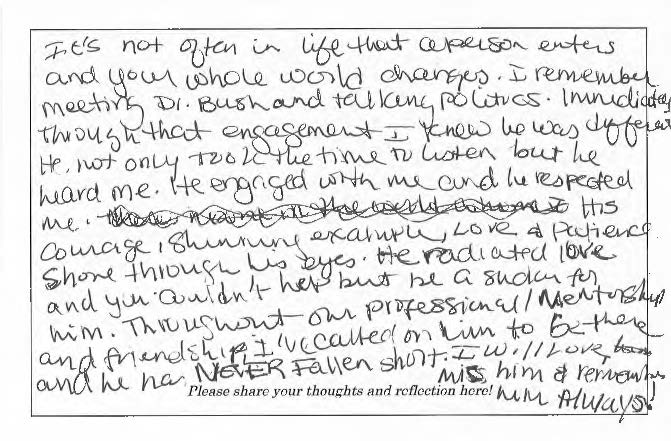 It's not often in life that a person enters
and your whole world changes. I remember
meeting Dr. Bush and talking politics. Immediately
through that engagement I knew he was different
He, not only took the time to listen but he
heard me. He engaged with me and he respected
me. His
Courage, Shinning example, Love & patience
Shone through his eyes. He radiated love
and you couldn't help but be a sucker for
him. Throughout our professional/Mentorship
and friendship, I've called on him to be there
and he has NEVER Fallen short. I will Love,
miss him & remember
Please share your thoughts and reflection here!
him Always!